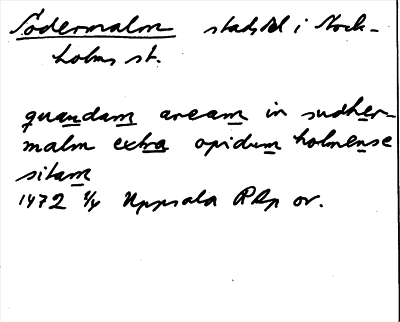 Södermalm stadsdel i Stock-
holms st.
quandam aream in sudher-
malm extra opidum holmense
sitam
1472 4/4 Uppsala RAp or.